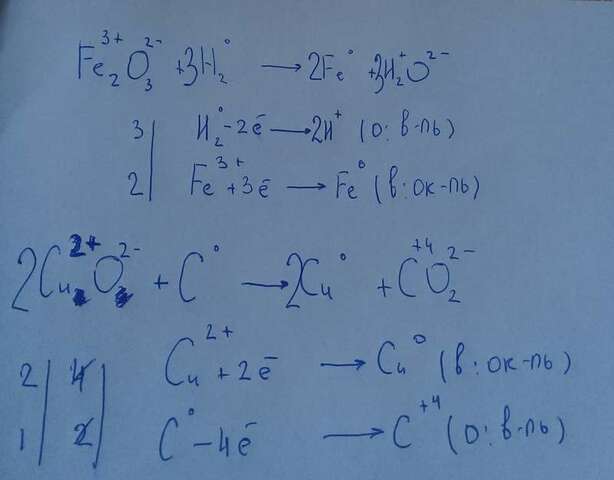 Fe₂³⁺O₃²⁻ + 3H₂⁰ → 2Fe⁰ + 3H₂⁺O²⁻
3 | H₂⁰ - 2ē → 2H⁺ (о: в-ль)
2 | Fe³⁺ + 3ē → Fe⁰ (в: ок-ль)
2Cu²⁺O²⁻ + C⁰ → 2Cu⁰ + C⁺⁴O₂²⁻
2 | 4 | Cu²⁺ + 2ē → Cu⁰ (в: ок-ль)
1 | 2 | C⁰ - 4ē → C⁺⁴ (о: в-ль)